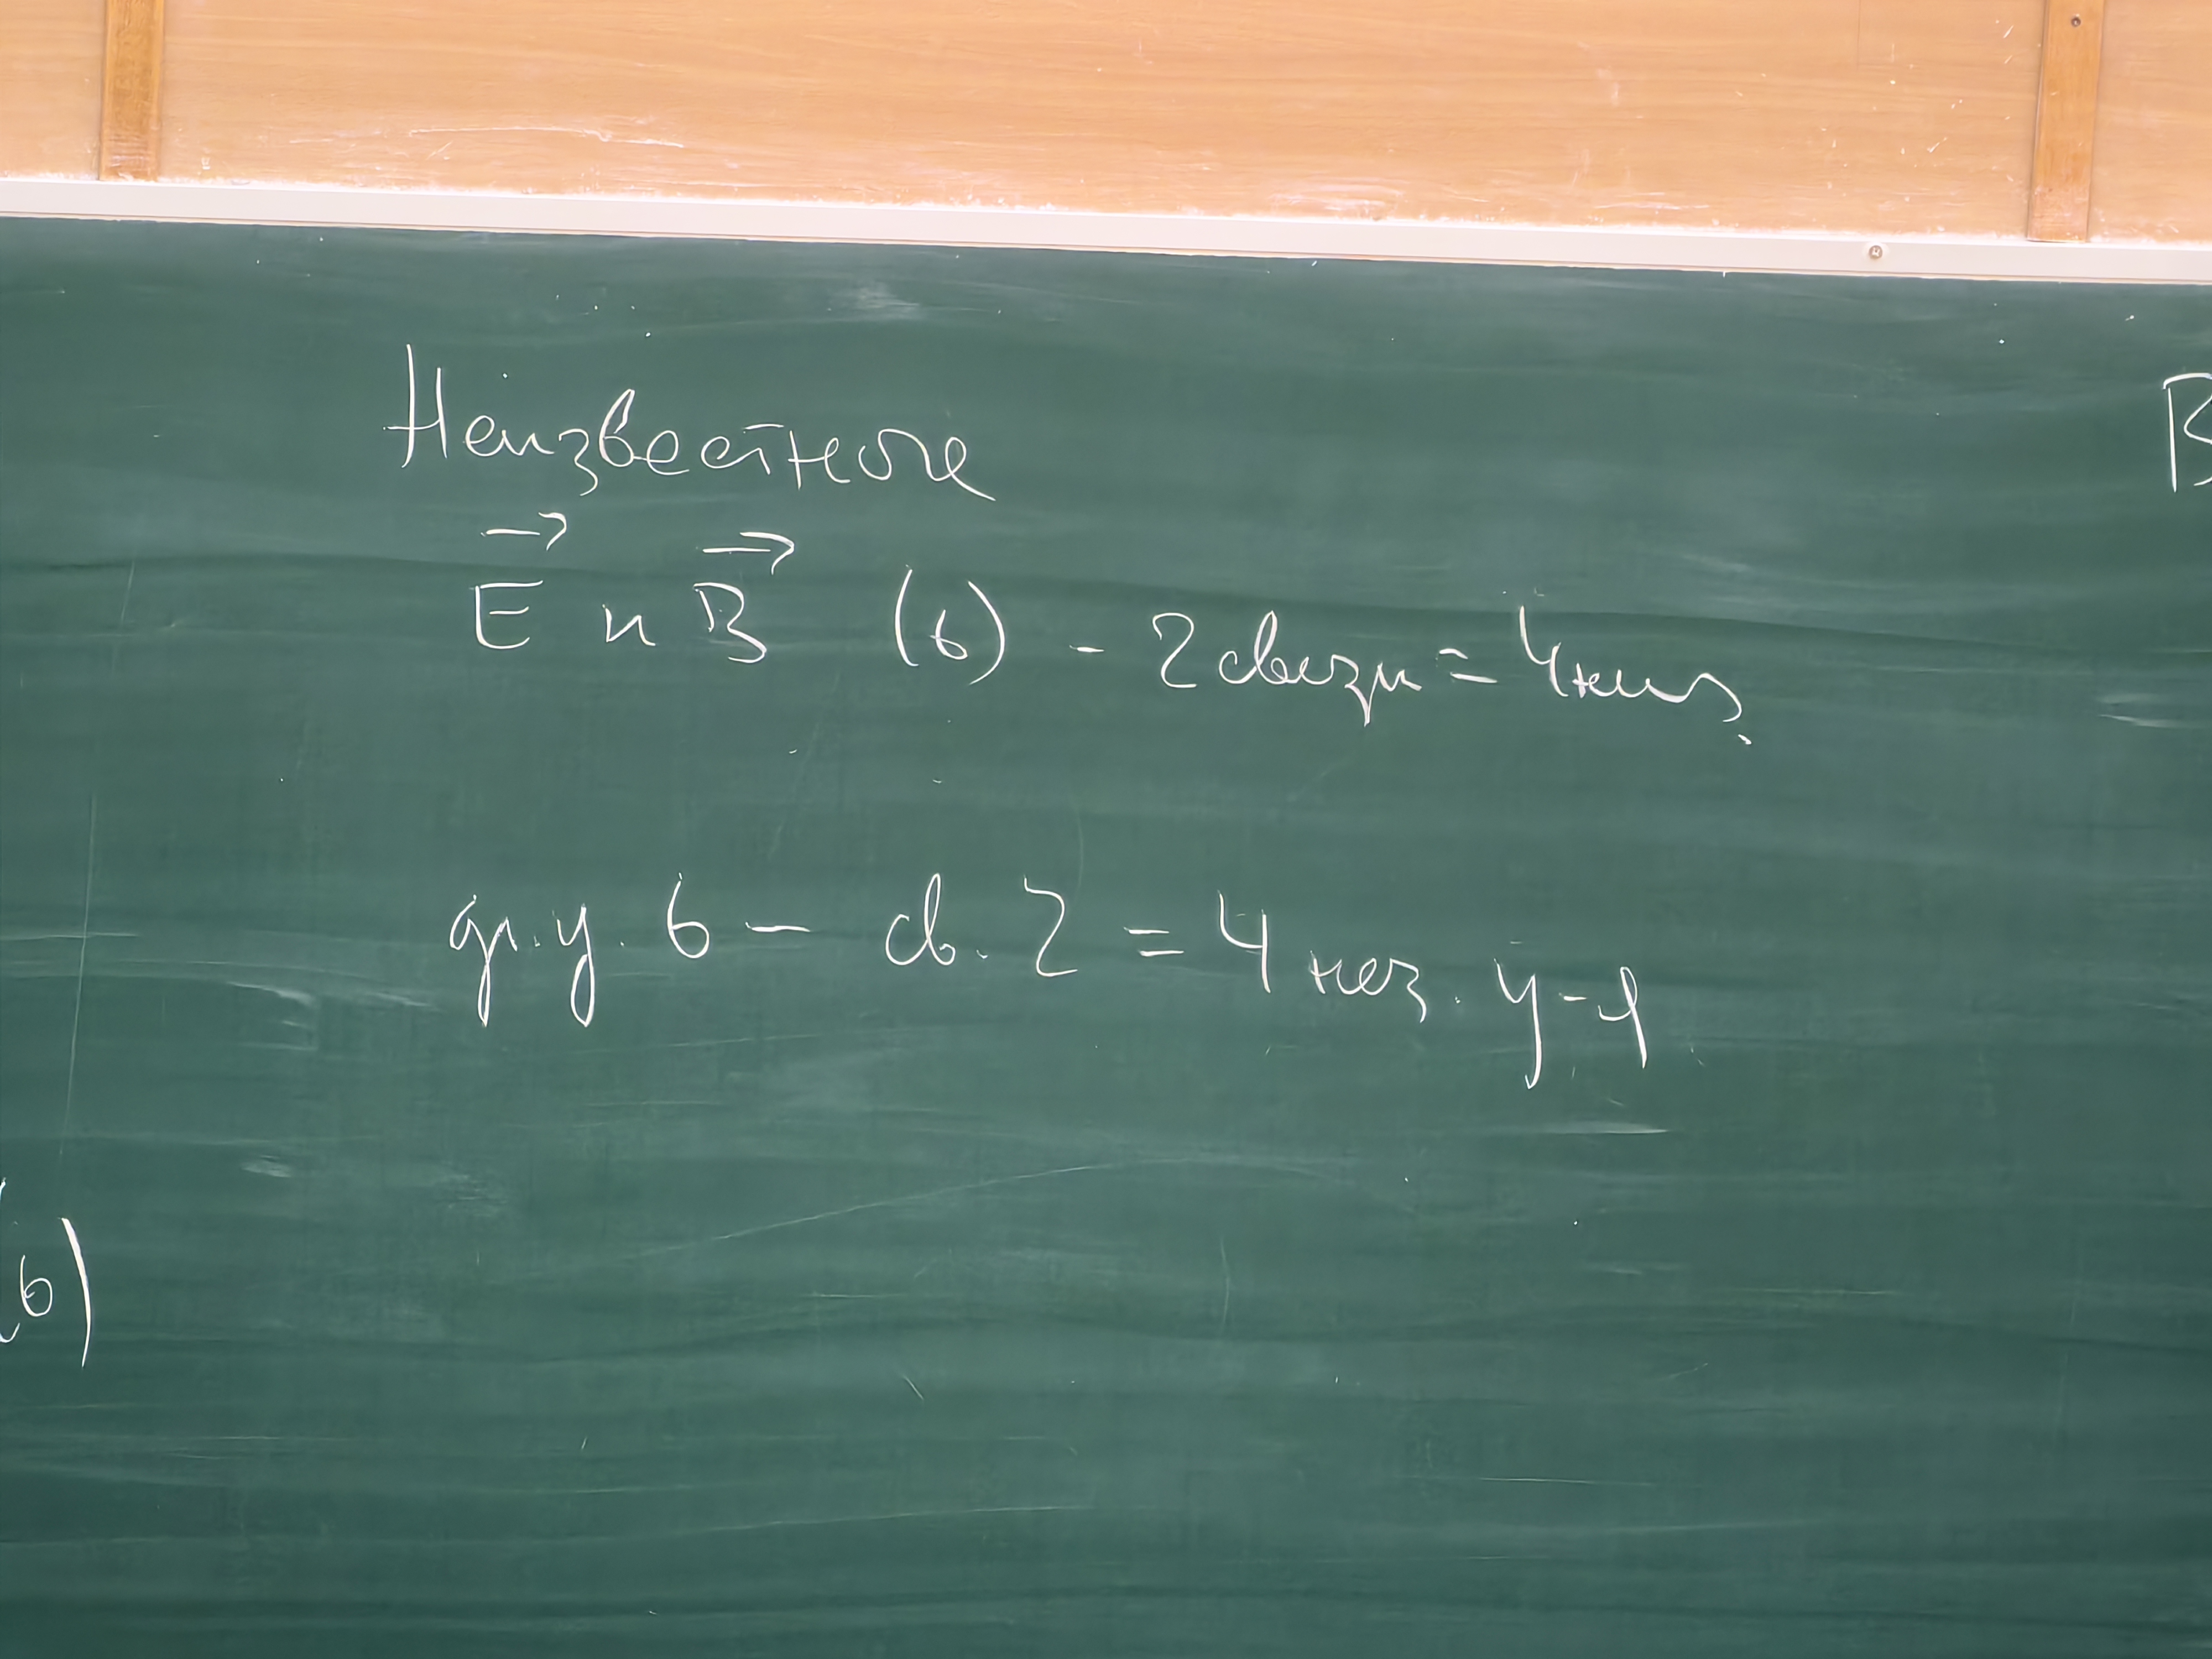 Неизвестные
E и B (6) - 2 связи = 4 неиз.
гр. у. 6 - св. 2 = 4 нез. у-я
B
(6)